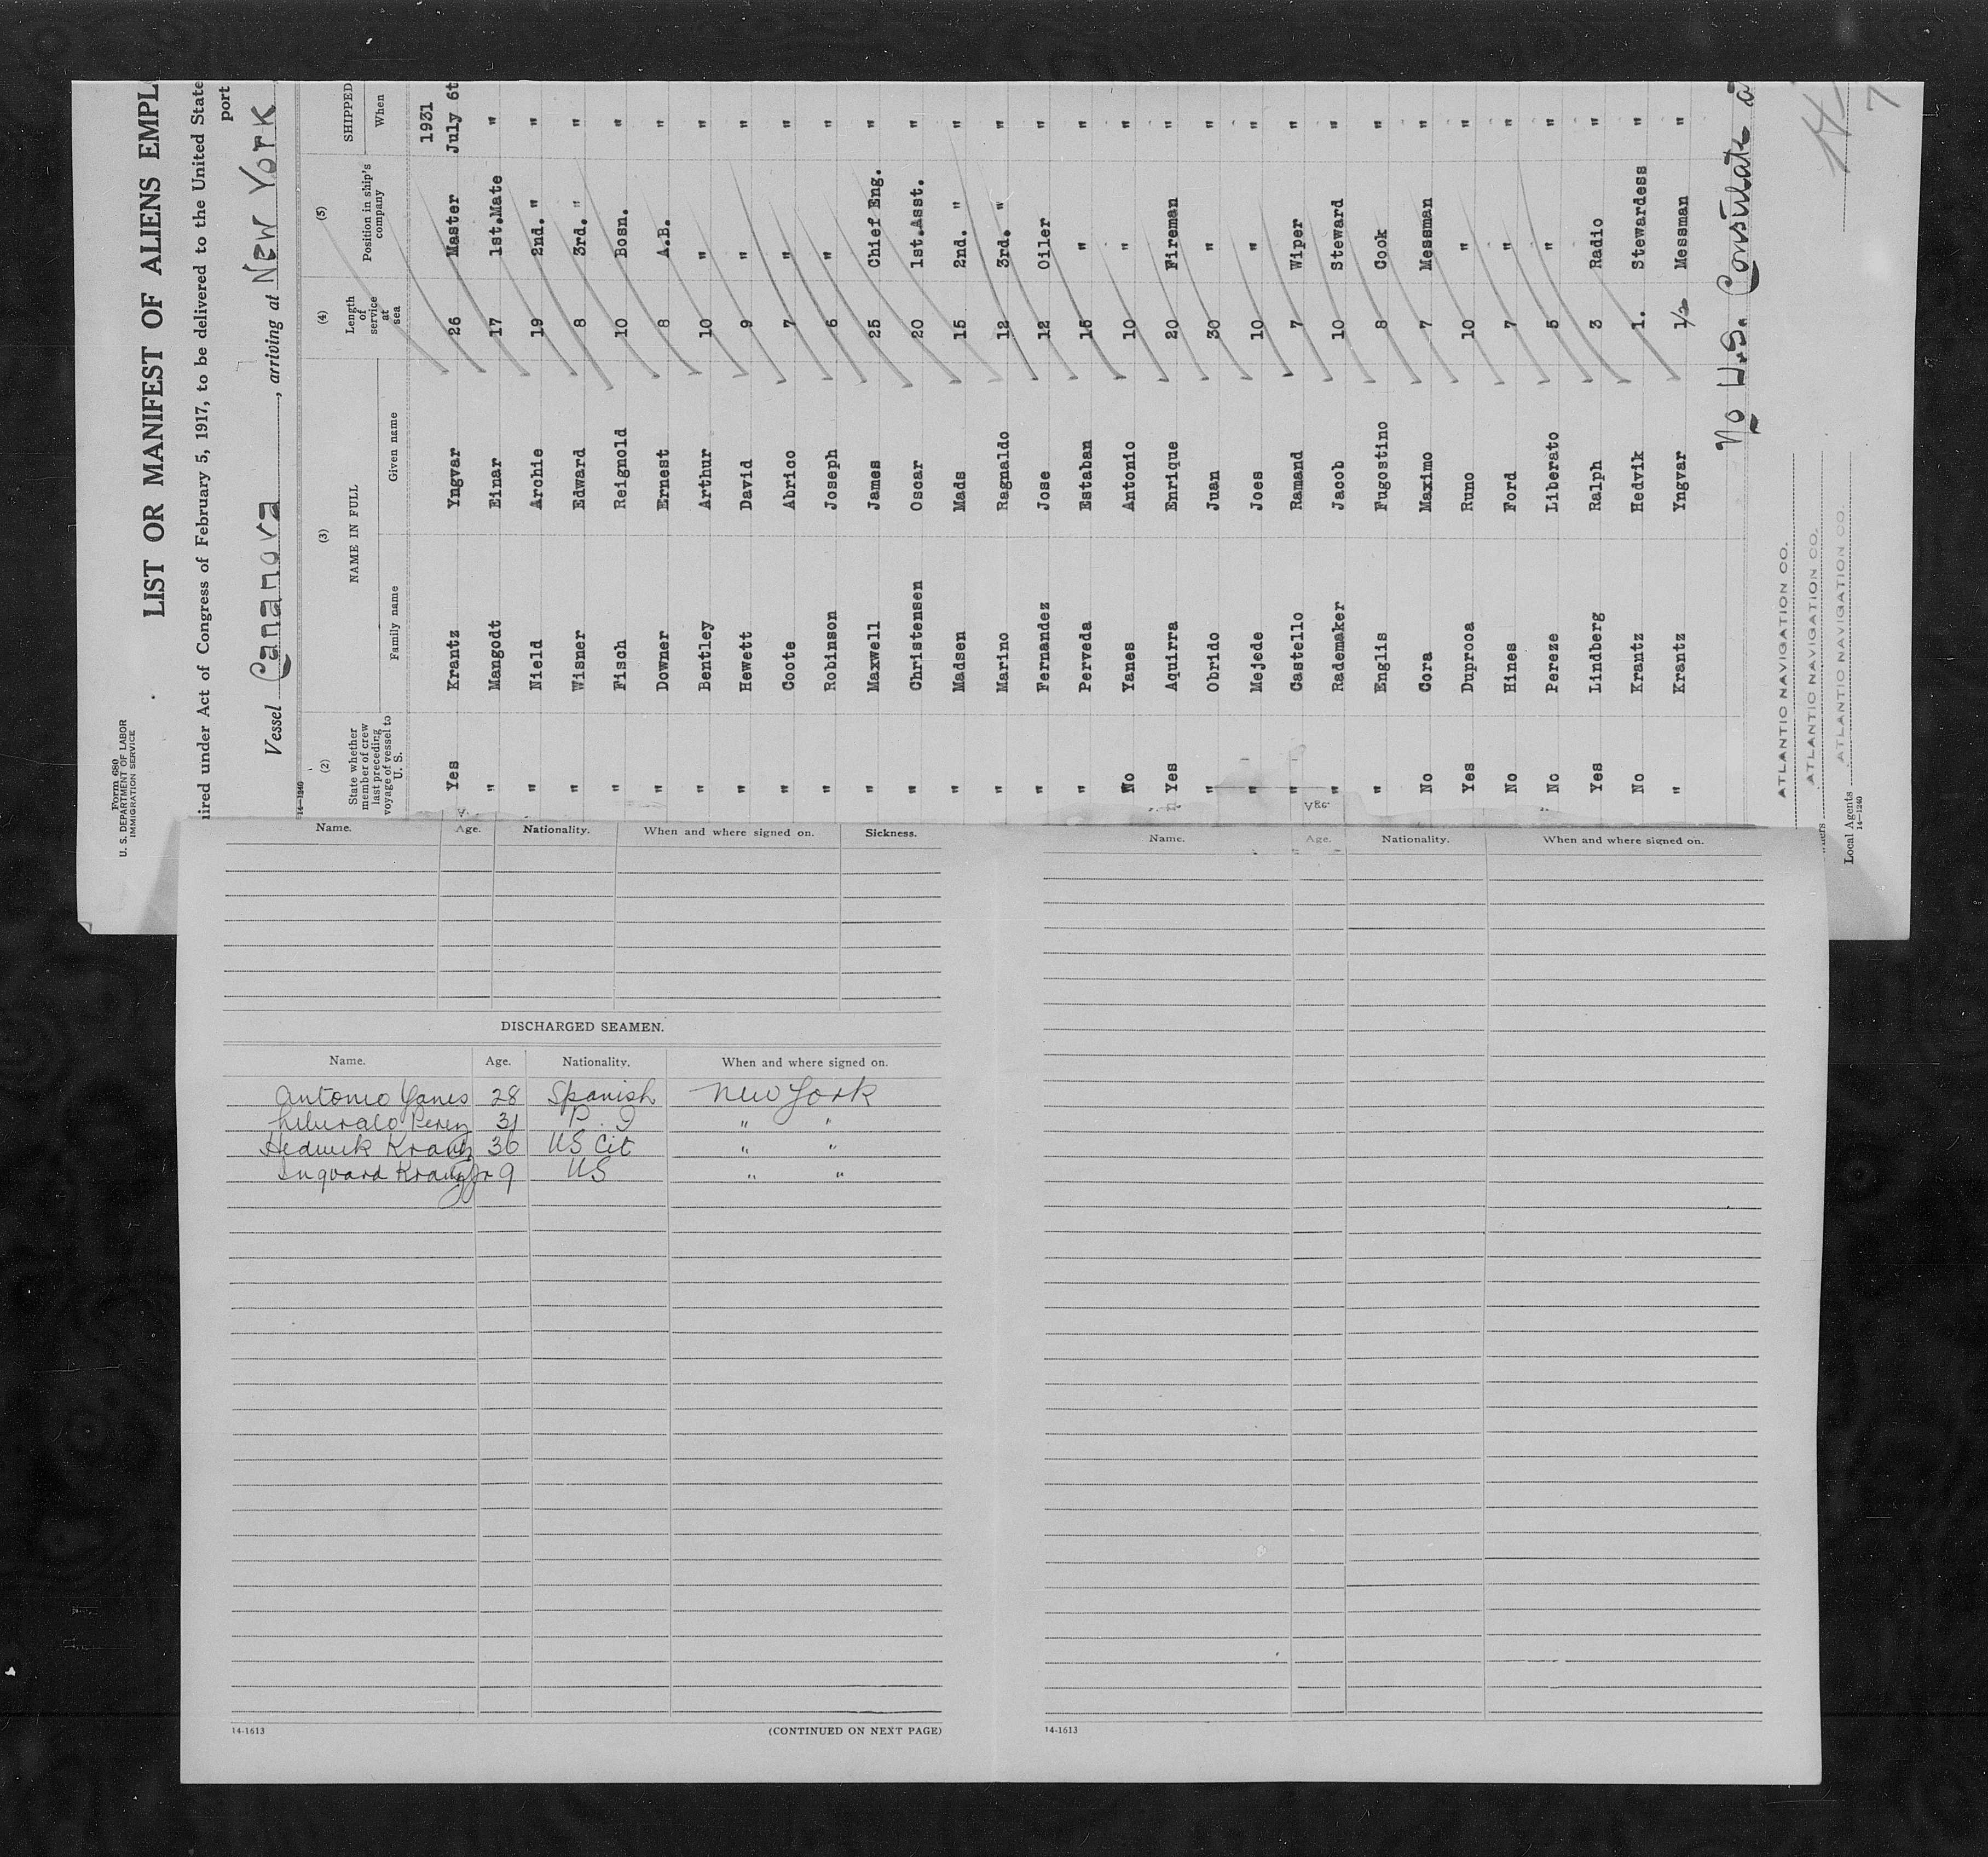 Form 680
U. S. DEPARTMENT OF LABOR
IMMIGRATION SERVICE
LIST OR MANIFEST OF ALIENS EMPL
ired under Act of Congress of February 5, 1917, to be delivered to the United State
port
Vessel Cananova, arriving at New York
14—1240
(2) (3) (4) (5)
State whether member of crew last preceding voyage of vessel to U. S. NAME IN FULL Length of service at sea Position in ship's company SHIPPED
Family name Given name When
1931
Yes Krantz Yngvar 26 Master July 6t
" Mangodt Einar 17 1st.Mate "
" Nield Archie 19 2nd. " "
" Wisner Edward 8 3rd. " "
" Fisch Reignold 10 Bosn. "
" Downer Ernest 8 A.B. "
" Bentley Arthur 10 " "
" Hewett David 9 " "
" Coote Abrico 7 " "
" Robinson Joseph 6 " "
" Maxwell James 25 Chief Eng. "
" Christensen Oscar 20 1st.Asst. "
" Madsen Mads 15 2nd. " "
" Marino Ragnaldo 12 3rd. " "
" Fernandez Jose 12 Oiler "
" Perveda Estaban 15 " "
No Yanes Antonio 10 " "
Yes Aquirra Enrique 20 Fireman "
" Obrido Juan 30 " "
" Mejede Joes 10 " "
" Castello Ramand 7 Wiper "
" Rademaker Jacob 10 Steward "
" Englis Fugostino 8 Cook "
No Cora Maximo 7 Messman "
Yes Duprooa Runo 10 " "
No Hines Ford 7 " "
No Pereze Liberato 5 " "
Yes Lindberg Ralph 3 Radio "
No Krantz Hedvik 1. Stewardess "
" Krantz Yngvar 1/2 Messman "
No U.S. Consulate a
ATLANTIC NAVIGATION CO.
ATLANTIC NAVIGATION CO.
Local Agents ATLANTIC NAVIGATION CO.
14—1240
7
Name. Age. Nationality. When and where signed on. Sickness.
DISCHARGED SEAMEN.
Name. Age. Nationality. When and where signed on.
Antonio Yanes 28 Spanish New York
Perez 31 " "
Hedwick Krantz 36 US Cit " "
Inqvard Krantz Jr 9 US " "
14-1613
(CONTINUED ON NEXT PAGE)
Name. Age. Nationality. When and where signed on.
14-1613